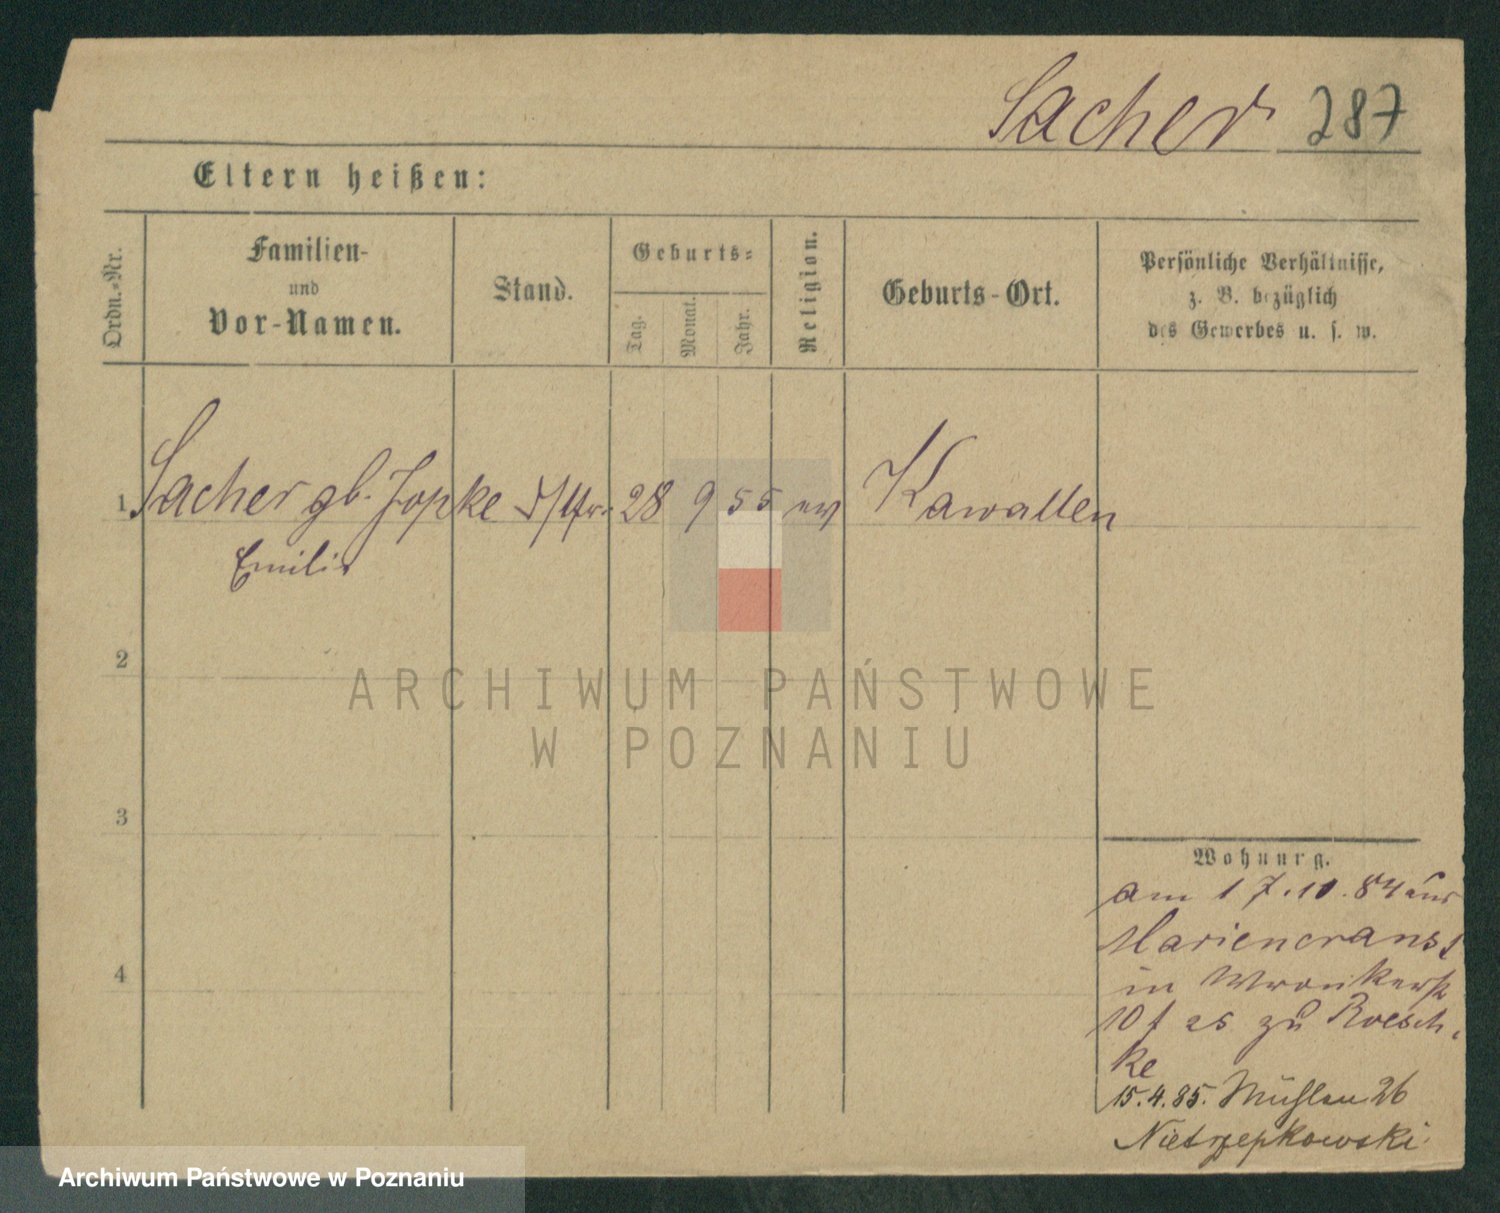 Sacher 287
Eltern heißen:
Ordn.-Nr.
Familien-
und
Vor-Namen.
Stand.
Geburts-
Tag.
Monat.
Jahr.
Religion.
Geburts-Ort.
Persönliche Verhältnisse,
z. B. bezüglich
des Gewerbes u. s. w.
1 Sacher gb. Jopke 28 9 55 ev Kawallen
Emilie
2
ARCHIWUM PAŃSTWOWE
W POZNANIU
3
4
Wohnung.
am 17.10.84 aus
in Wronkerst
10 zu Roesch-
ke
15.4.85. Mühlen 26
Nietrzepkowski
Archiwum Państwowe w Poznaniu